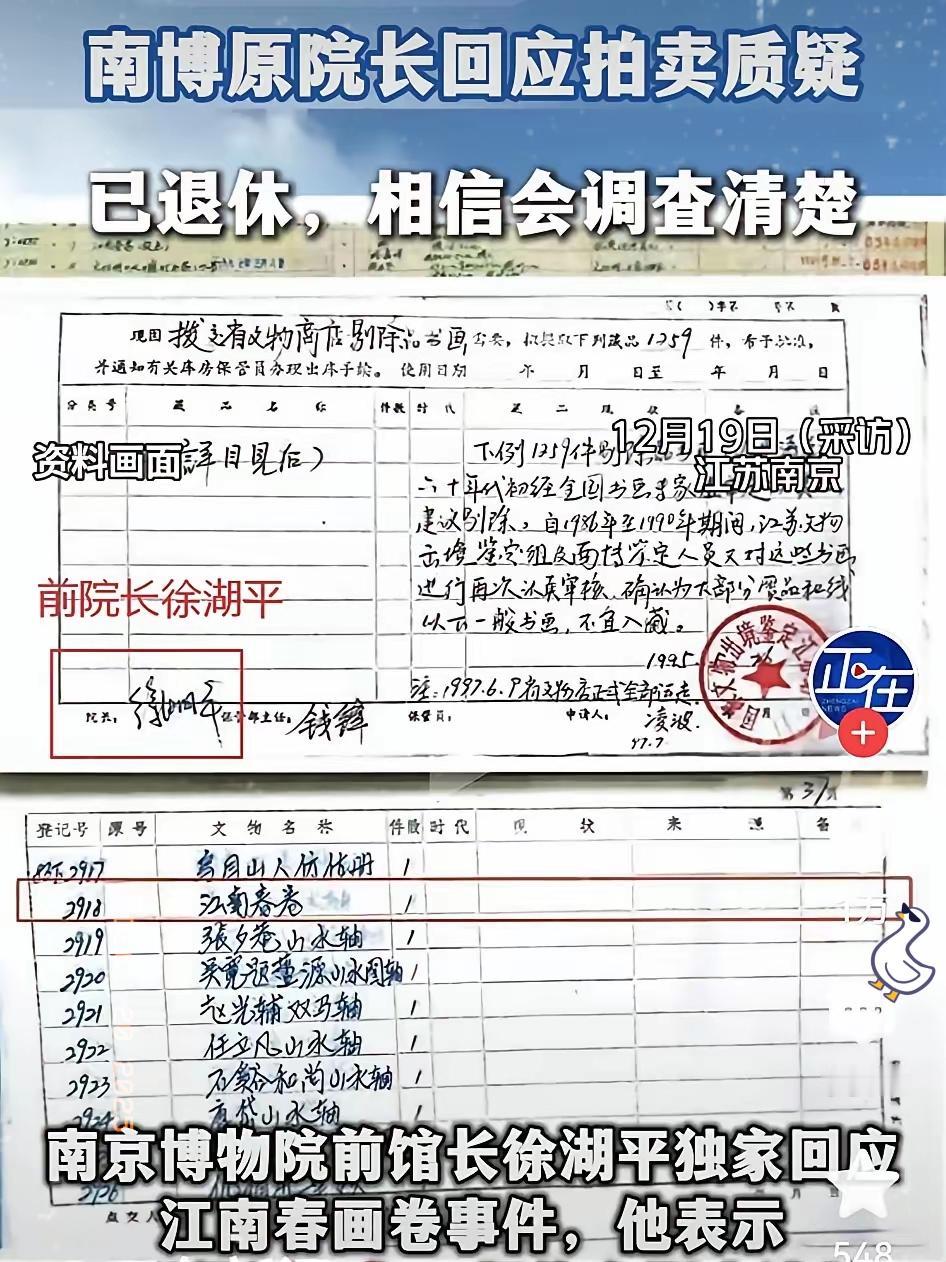 南博原院长回应拍卖质疑
已退休，相信会调查清楚
现因 拨交省文物商店剔除品书画 需要，拟提取下列藏品 1259 件，希予批准，
并通知有关库房保管员办理出库手续。 使用日期 年 月 日至 年 月 日
分类号 藏品名称 件数 时代 备注
资料画面
12月19日（采访）
江苏南京
（详目见后）
下例1259件剔除
六十年代初经全国书画专家
建议剔除。自1986年至1990年期间，江苏文物
出境鉴定组及南博鉴定人员又对这些书画
进行再次认真审核，确认为大部分赝品和线
以下一般书画，不宜入藏。
前院长徐湖平
1995
注：1997.6.9
院长： 徐湖平 保管部主任： 钱锋 保管员： 申请人： 凌波
97.7.
正在
ZHENGZAI
NEWS
第 3 页
登记号 原号 文物名称 件数 时代 现状 来源 备
2917 乌目山人仿倪册 1
2918 江南春卷 1
2919 張夕庵山水轴 1
2920 1
2921 赵光辅双马轴 1
2922 任立凡山水轴 1
2923 石谿和尚山水轴 1
2924 山水轴
1万
南京博物院前馆长徐湖平独家回应
江南春画卷事件，他表示
点交人
548